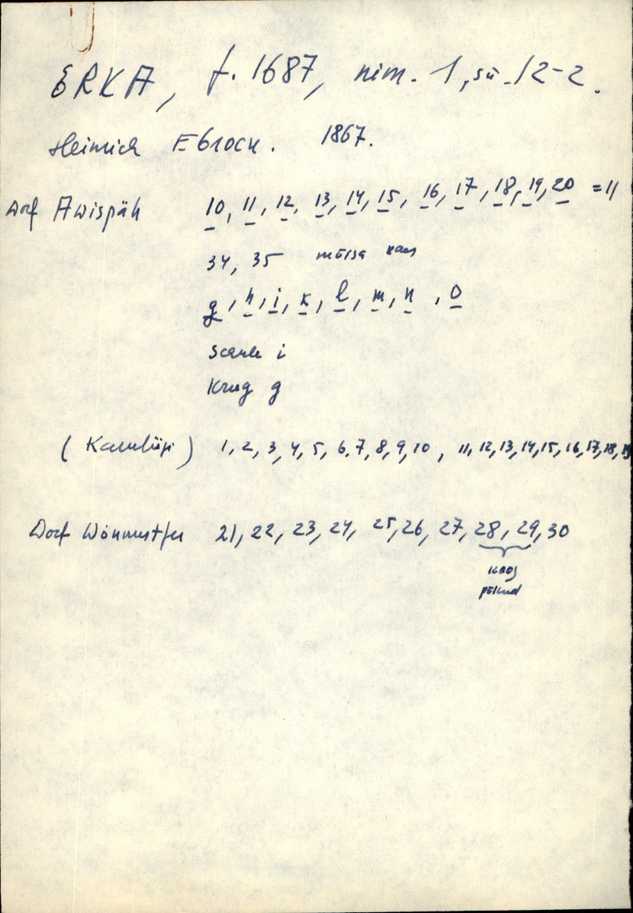 ERKA, f. 1687, nim. 1, sü. 12-2.
Heinrich Ebrock. 1867.
Dorf Awispäh 10, 11, 12, 13, 14, 15, 16, 17, 18, 19, 20 = 11
34, 35 mõisa
g, h, i, k, l, m, n, o
i
Krug g
( ) 1, 2, 3, 4, 5, 6, 7, 8, 9, 10, 11, 12, 13, 14, 15, 16, 17, 18, 19
Dorf 21, 22, 23, 24, 25, 26, 27, 28, 29, 30
põlnud